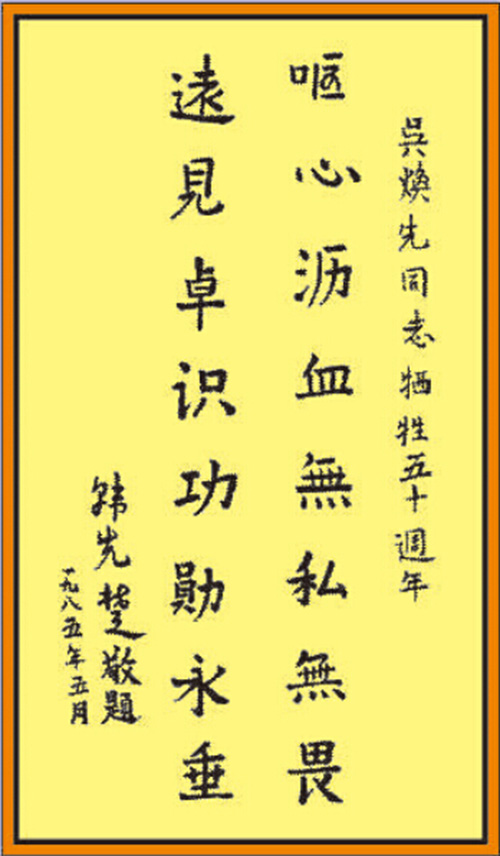 吳煥先同志牺牲五十週年
呕心沥血無私無畏
遠見卓识功勛永垂
韩先楚敬題
一九八五年五月